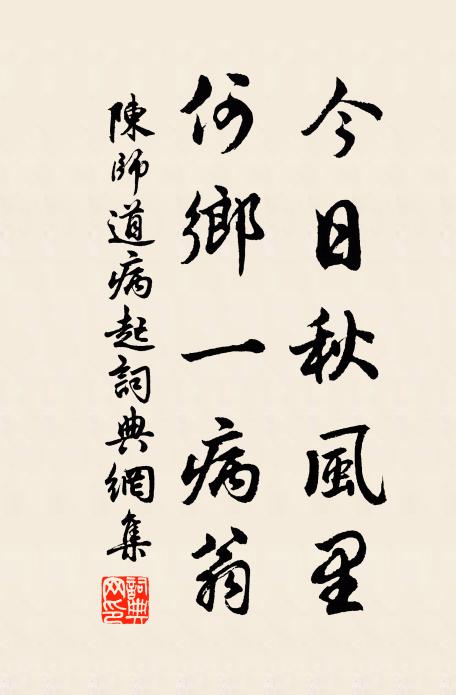 今日秋風里
何鄉一病翁
陳師道病起詞典網集
詞典網印